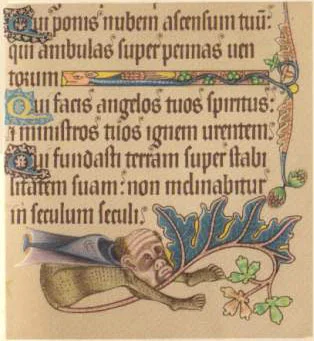 Qui ponis nubem ascensum tuū:
qui ambulas super pennas uen
torum
Qui facis angelos tuos spiritus:
i ministros tuos ignem urentem.
Qui fundasti terram super stabi
litatem suam: non inclinabitur
in seculum seculi.